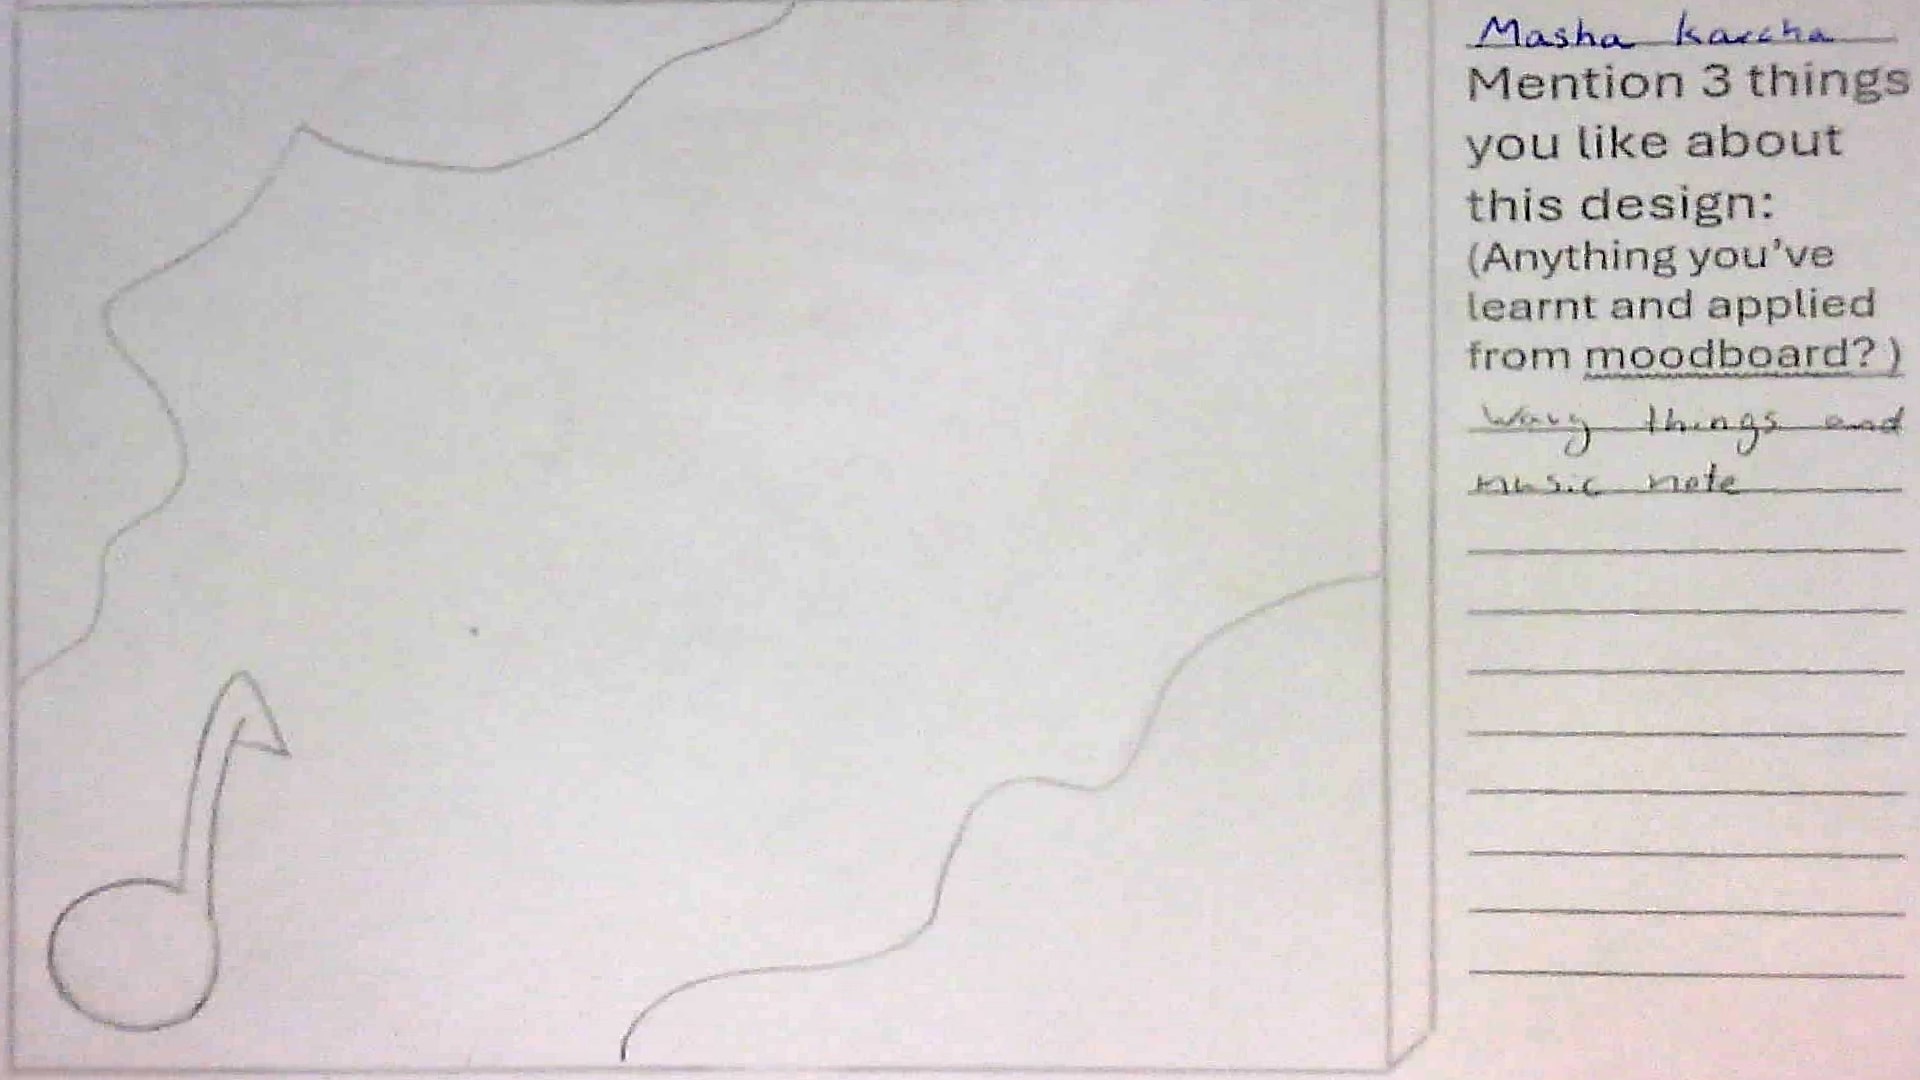 Masha karcha
Mention 3 things
you like about
this design:
(Anything you've
learnt and applied
from moodboard? )
wavy things and
music note